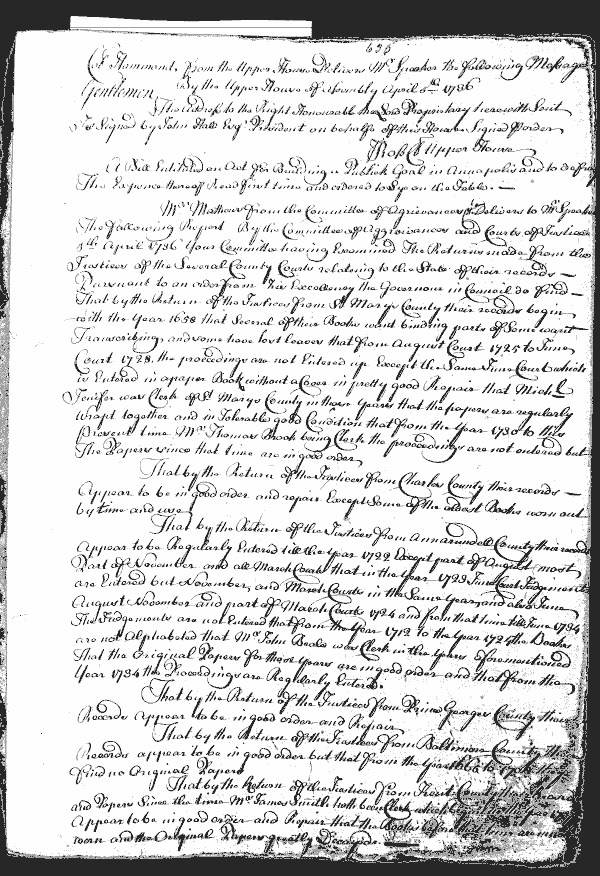 635
Col Hammond from the Upper House Delivers Mr Speaker the following Message
By the Upper House of Assembly April 5th 1736
Gentlemen
The address to the Right Honourable the Lord Proprietary herewith Sent
Is Signed by John Hall Esqr President on behalfe of this House Signed p order
Ross Cl Upper House
A Bill Entituled an Act for Building a Publick Goal in Annapolis and to defray
The Expence thereoff Read first time and ordered to Lye on the Table. —
Mr Mathews from the Committee of Agrievances Delivers to Mr Speaker
The following Report By the Committee of Aggrievances and Courts of Justice
5th April 1736 Your Committee having Examined The Returns made from the
Justices of the Several County Courts relating to the State of their records —
Pursuant to an order from his Excellency the Governour in Council do find —
That by the Return of the Justices from St Marys County their records begin
with the Year 1658 that Several of their Books want binding parts of Some want
Transcribing, and some have lost leaves that from August Court 1725 to June
Court 1728. the proceedings are not Entered up Except the Same June Court which
is Entered in a paper Book without a Cover in pretty good Repair that Michl
Jenifer was Clerk of St Marys County in those Years that the papers are regularly
wrapt together and in Tolerable good Condition that from the Year 1730 to this
Present time Mr Thomas Brook being Clerk the proceedings are not entered but
The Papers since that time are in good order
That by the Return of the Justices from Charles County their records —
Appear to be in good order and repair Except Some of the oldest Books worn out
by time and use
That by the Return of the Justices from Annarundell County their records
Appear to be Regularly Entered till the Year 1722 Except part of August most
Part of November and all March Court that in the Year 1723 June Court Judgements
are Entered but November, and March Courts in the Same Year, and also June
August November and part of March Court 1724 and from that time till June 1734
The Judgements are not Entered that from the Year 1712 to the Year 1724 the Books
are not Alphabeted that Mr John Beale was Clerk in the Years aforementioned
That the Original Papers for those Years are in good order and that from the
Year 1734 the Proceedings are Regularly Entered.
That by the Return of the Justices from Prince Georges County their
Records Appear to be in good order and Repair
That by the Return of the Justices from Baltimore County their
Records appear to be in good order but that from the Year to they
find no Original Papers
That by the Return of the Justices from Kent County their Records
and Papers Since the time Mr James Smith hath been Clerk which
Appear to be in good order and Repair that the Books before that time are much
worn and the Original Papers greatly Decayed. —